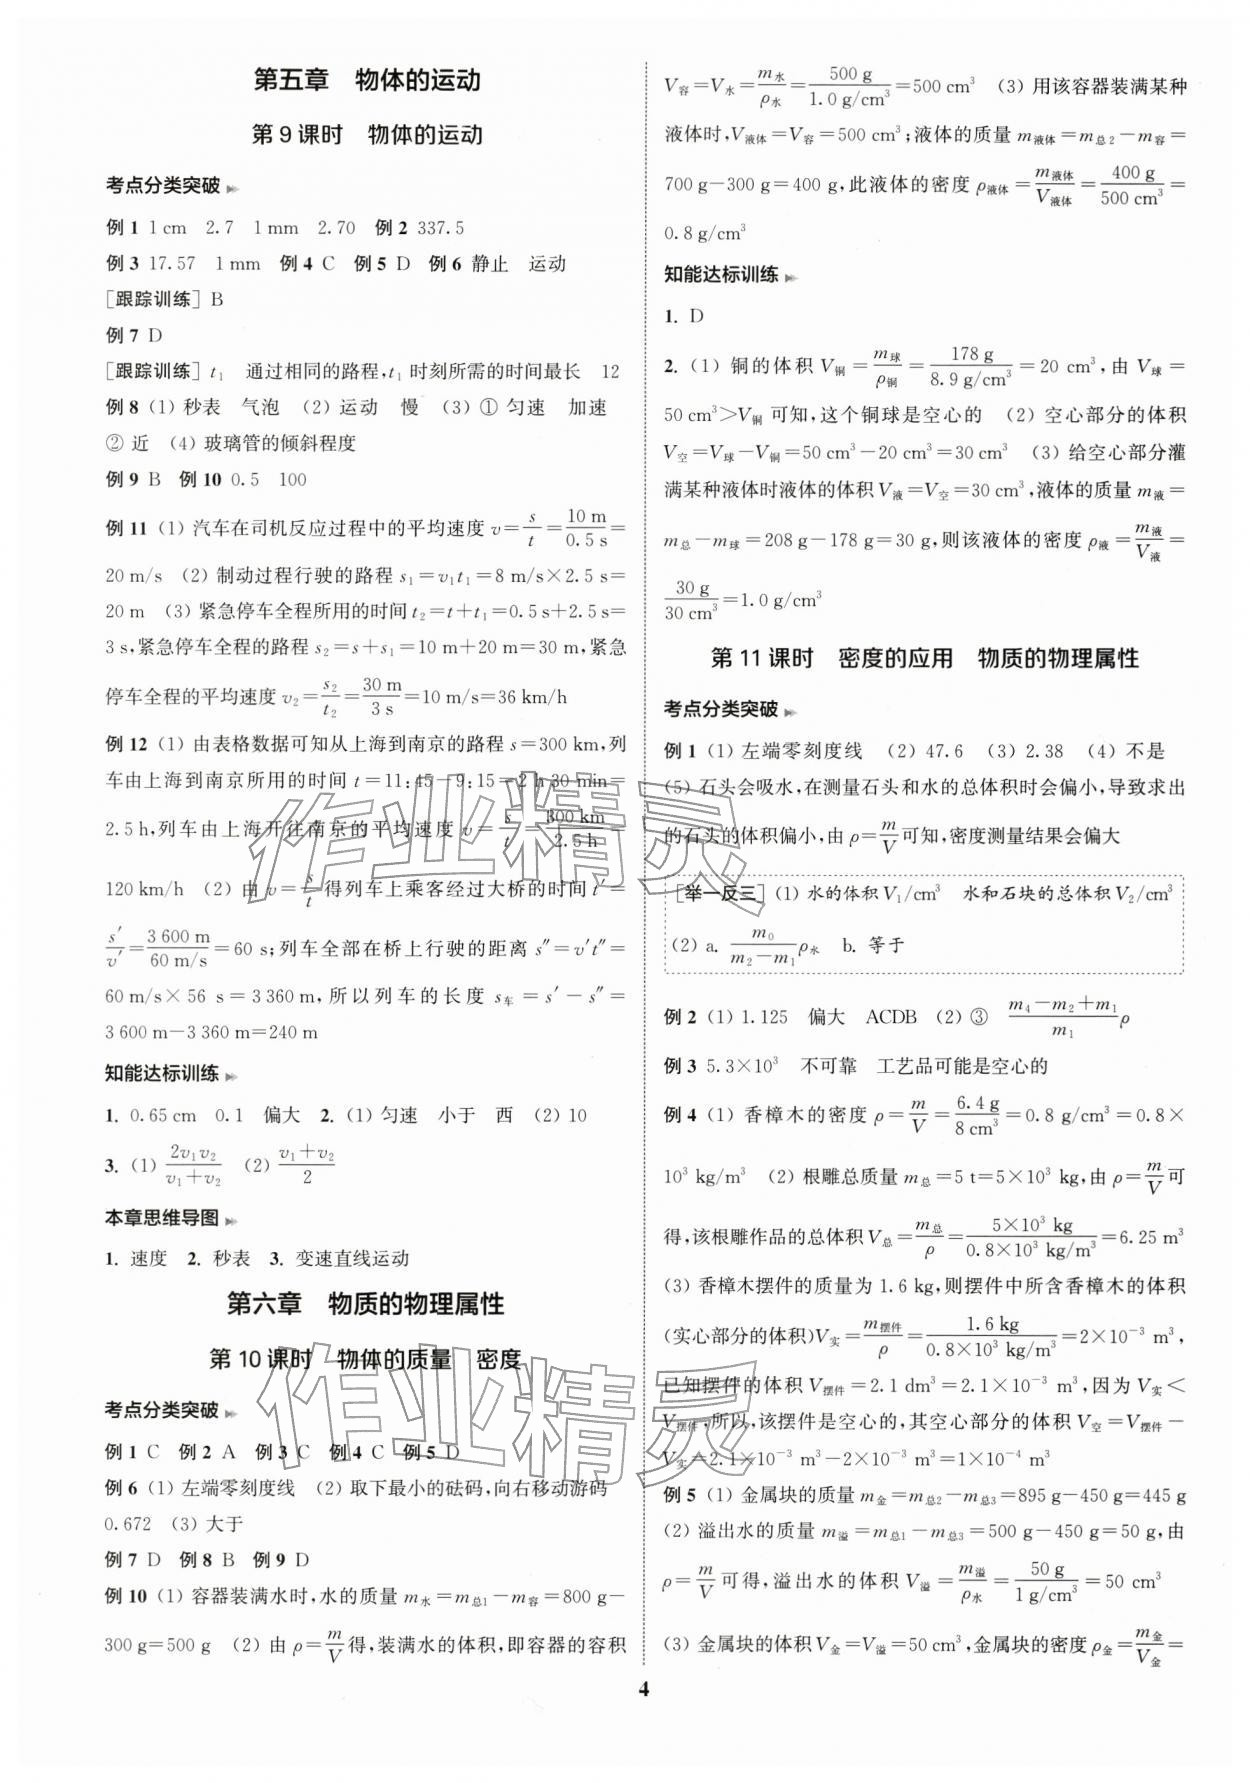 第五章　物体的运动
第 9 课时　物体的运动
考点分类突破
例 1 1 cm　2.7　1 mm　2.70　例 2 337.5
例 3 17.57　1 mm　例 4 C　例 5 D　例 6 静止　运动
[跟踪训练] B
例 7 D
[跟踪训练] t₁　通过相同的路程,t₁ 时刻所需的时间最长　12
例 8 (1) 秒表　气泡　(2) 运动　慢　(3) ① 匀速　加速
② 近　(4) 玻璃管的倾斜程度
例 9 B　例 10 0.5　100
例 11 (1) 汽车在司机反应过程中的平均速度 v=s/t=10 m/0.5 s=
20 m/s　(2) 制动过程行驶的路程 s₁=v₁t₁=8 m/s×2.5 s=
20 m　(3) 紧急停车全程所用的时间 t₂=t+t₁=0.5 s+2.5 s=
3 s,紧急停车全程的路程 s₂=s+s₁=10 m+20 m=30 m,紧急
停车全程的平均速度 v₂=s₂/t₂=30 m/3 s=10 m/s=36 km/h
例 12 (1) 由表格数据可知从上海到南京的路程 s=300 km,列
车由上海到南京所用的时间 t=11:45-9:15=2 h 30 min=
2.5 h,列车由上海开往南京的平均速度 v=s/t=300 km/2.5 h=
120 km/h　(2) 由 v=s/t 得列车上乘客经过大桥的时间 t′=
s′/v′=3 600 m/60 m/s=60 s;列车全部在桥上行驶的距离 s″=v′t″=
60 m/s×56 s=3 360 m,所以列车的长度 s车=s′-s″=
3 600 m-3 360 m=240 m
知能达标训练
1. 0.65 cm　0.1　偏大　2. (1) 匀速　小于　西　(2) 10
3. (1) 2v₁v₂/(v₁+v₂)　(2) (v₁+v₂)/2
本章思维导图
1. 速度　2. 秒表　3. 变速直线运动
第六章　物质的物理属性
第 10 课时　物体的质量　密度
考点分类突破
例 1 C　例 2 A　例 3 C　例 4 C　例 5 D
例 6 (1) 左端零刻度线　(2) 取下最小的砝码,向右移动游码
0.672　(3) 大于
例 7 D　例 8 B　例 9 D
例 10 (1) 容器装满水时,水的质量 m水=m总1-m容=800 g-
300 g=500 g　(2) 由 ρ=m/V得,装满水的体积,即容器的容积
V容=V水=m水/ρ水=500 g/1.0 g/cm³=500 cm³　(3) 用该容器装满某种
液体时,V液体=V容=500 cm³;液体的质量 m液体=m总2-m容=
700 g-300 g=400 g,此液体的密度 ρ液体=m液体/V液体=400 g/500 cm³=
0.8 g/cm³
知能达标训练
1. D
2. (1) 铜的体积 V铜=m球/ρ铜=178 g/8.9 g/cm³=20 cm³,由 V球=
50 cm³>V铜 可知,这个铜球是空心的　(2) 空心部分的体积
V空=V球-V铜=50 cm³-20 cm³=30 cm³　(3) 给空心部分灌
满某种液体时液体的体积 V液=V空=30 cm³,液体的质量 m液=
m总-m球=208 g-178 g=30 g,则该液体的密度 ρ液=m液/V液=
30 g/30 cm³=1.0 g/cm³
第 11 课时　密度的应用　物质的物理属性
考点分类突破
例 1 (1) 左端零刻度线　(2) 47.6　(3) 2.38　(4) 不是
(5) 石头会吸水,在测量石头和水的总体积时会偏小,导致求出
的石头的体积偏小,由 ρ=m/V可知,密度测量结果会偏大
[举一反三] (1) 水的体积 V₁/cm³　水和石块的总体积 V₂/cm³
(2) a. m₀/(m₂-m₁)ρ水　b. 等于
例 2 (1) 1.125　偏大　ACDB　(2) ③　(m₄-m₂+m₁)/m₁ρ
例 3 5.3×10³　不可靠　工艺品可能是空心的
例 4 (1) 香樟木的密度 ρ=m/V=6.4 g/8 cm³=0.8 g/cm³=0.8×
10³ kg/m³　(2) 根雕总质量 m总=5 t=5×10³ kg,由 ρ=m/V可
得,该根雕作品的总体积 V总=m总/ρ=5×10³ kg/0.8×10³ kg/m³=6.25 m³
(3) 香樟木摆件的质量为 1.6 kg,则摆件中所含香樟木的体积
(实心部分的体积)V实=m摆件/ρ=1.6 kg/0.8×10³ kg/m³=2×10⁻³ m³,
已知摆件的体积 V摆件=2.1 dm³=2.1×10⁻³ m³,因为 V实<
V摆件,所以,该摆件是空心的,其空心部分的体积 V空=V摆件-
V实=2.1×10⁻³ m³-2×10⁻³ m³=1×10⁻⁴ m³
例 5 (1) 金属块的质量 m金=m总2-m总3=895 g-450 g=445 g
(2) 溢出水的质量 m溢=m总1-m总3=500 g-450 g=50 g,由
ρ=m/V可得,溢出水的体积 V溢=m溢/ρ水=50 g/1 g/cm³=50 cm³
(3) 金属块的体积 V金=V溢=50 cm³,金属块的密度 ρ金=m金/V金=
4
作业精灵
作业精灵